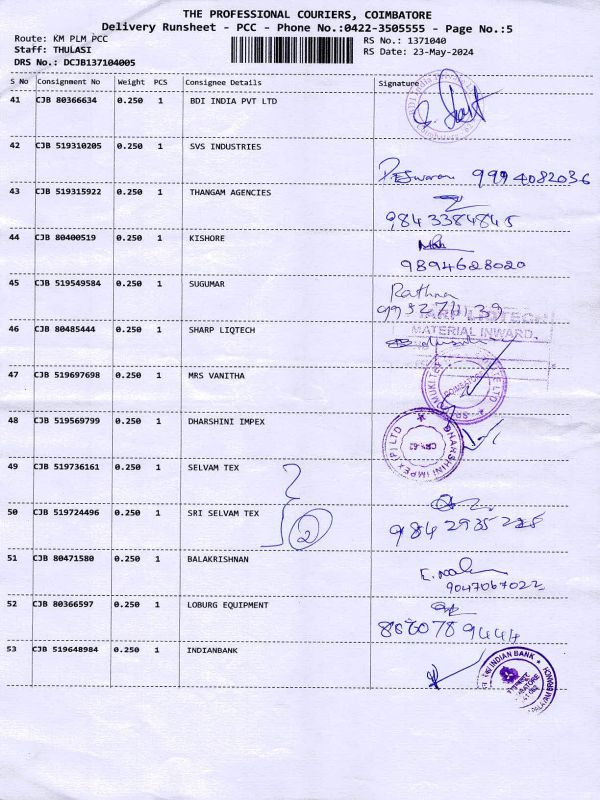 THE PROFESSIONAL COURIERS, COIMBATORE
Delivery Runsheet - PCC - Phone No.:0422-3505555 - Page No.:5
Route: KM PLM PCC
RS No.: 1371040
Staff: THULASI
RS Date: 23-May-2024
DRS No.: DCJB137104005
S No Consignment No Weight PCS Consignee Details Signature
41 CJB 80366634 0.250 1 BDI INDIA PVT LTD
42 CJB 519310205 0.250 1 SVS INDUSTRIES
9994082036
43 CJB 519315922 0.250 1 THANGAM AGENCIES
9843384845
44 CJB 80400519 0.250 1 KISHORE
9894628020
45 CJB 519549584 0.250 1 SUGUMAR
Rathna
46 CJB 80485444 0.250 1 SHARP LIQTECH
SHARP LIQTECH
MATERIAL INWARD.
47 CJB 519697698 0.250 1 MRS VANITHA
COIMBATORE
48 CJB 519569799 0.250 1 DHARSHINI IMPEX
DHARSHINI IMPEX (P) LTD
49 CJB 519736161 0.250 1 SELVAM TEX
50 CJB 519724496 0.250 1 SRI SELVAM TEX
2
9842935225
51 CJB 80471580 0.250 1 BALAKRISHNAN
9047067022
52 CJB 80366597 0.250 1 LOBURG EQUIPMENT
8660789444
53 CJB 519648984 0.250 1 INDIANBANK
INDIAN BANK